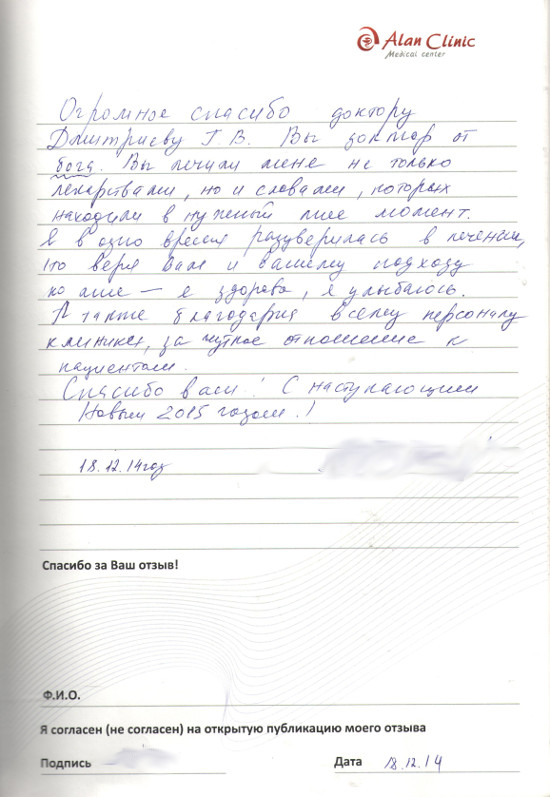 Alan Clinic
Medical center
Огромное спасибо доктору
Дмитриеву Г.В. Вы доктор от
бога. Вы лечили меня не только
лекарствами, но и словами, которых
находили в нужный мне момент.
Я в одно время разуверилась в лечении,
но веря Вам и вашему подходу
ко мне – я здорова, я улыбаюсь.
А также благодарна всему персоналу
клиники, за чуткое отношение к
пациентам.
Спасибо вам! С наступающим
Новым 2015 годом!
18.12.14год
Спасибо за Ваш отзыв!
Ф.И.О.
Я согласен (не согласен) на открытую публикацию моего отзыва
Подпись
Дата 18.12.14